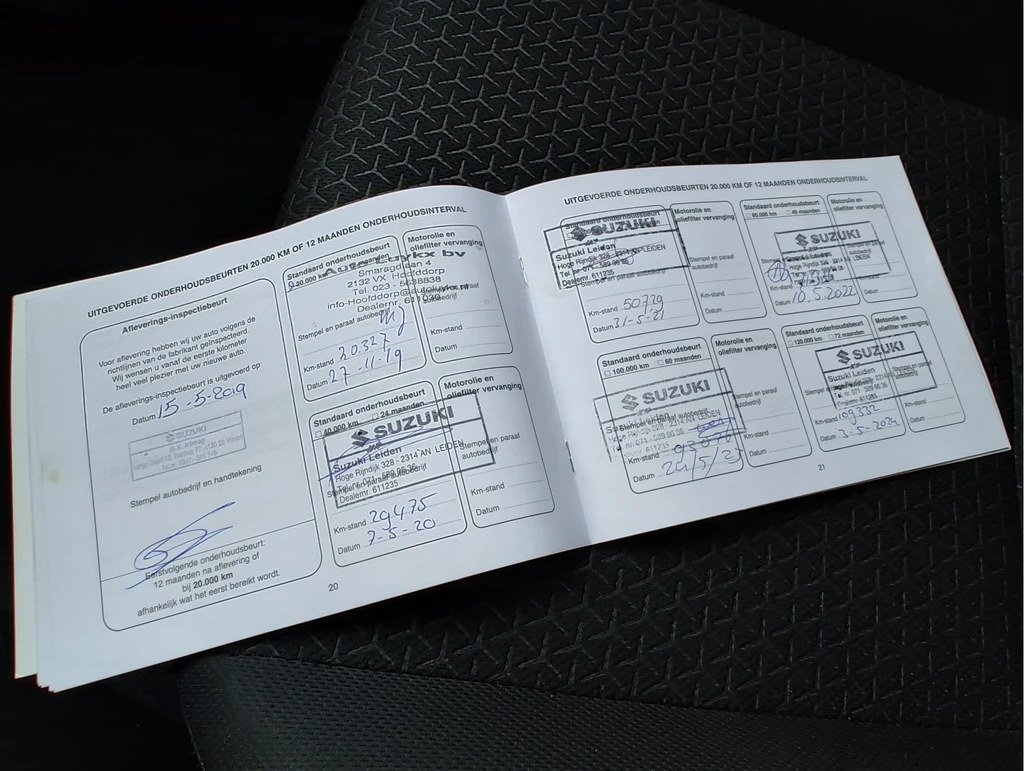 UITGEVOERDE ONDERHOUDSBEURTEN 20.000 KM OF 12 MAANDEN ONDERHOUDSINTERVAL
Afleverings-inspectiebeurt
Voor aflevering hebben wij uw auto volgens de
richtlijnen van de fabrikant geïnspecteerd.
Wij wensen u vanaf de eerste kilometer
heel veel plezier met uw nieuwe auto.
De afleverings-inspectiebeurt is uitgevoerd op:
Datum 15-5-2019
SUZUKI
Stempel autobedrijf en handtekening
Eerstvolgende onderhoudsbeurt:
12 maanden na aflevering of
bij 20.000 km
afhankelijk wat het eerst bereikt wordt.
Standaard onderhoudsbeurt
20.000 km
bv
Smaragdlaan 4
2132 VX Hoofddorp
Tel. 023 - 5638838
Stempel en paraaf autobedrijf
Km-stand 20.327
Datum 27-11-19
Motorolie en
oliefilter vervanging
Km-stand
Datum
Standaard onderhoudsbeurt
40.000 km 24 maanden
SUZUKI
Suzuki Leiden
Hoge Rijndijk 328 - 2314 AN LEIDEN
Tel. nr. 071 - 589 96 36
Stempel en paraaf autobedrijf
Dealernr. 611235
Km-stand 29475
Datum 7-5-20
Motorolie en
oliefilter vervanging
Stempel en paraaf
autobedrijf
Km-stand
Datum
20
UITGEVOERDE ONDERHOUDSBEURTEN 20.000 KM OF 12 MAANDEN ONDERHOUDSINTERVAL
Standaard onderhoudsbeurt
SUZUKI
Suzuki Leiden
Hoge Rijndijk 328 - 2314 AN LEIDEN
Tel. nr. 071 - 589 96 36
Dealernr. 611235
Stempel en paraaf autobedrijf
Km-stand 50729
Datum 31-5-21
Motorolie en
oliefilter vervanging
Stempel en paraaf
autobedrijf
Km-stand
Datum
Standaard onderhoudsbeurt
80.000 km 48 maanden
SUZUKI
Datum 10.5.2022
Motorolie en
oliefilter vervanging
Stempel en paraaf
autobedrijf
Km-stand
Datum
Standaard onderhoudsbeurt
100.000 km 60 maanden
SUZUKI
Suzuki Leiden
Stempel en paraaf autobedrijf
Hoge Rijndijk 328 - 2314 AN LEIDEN
Tel. nr. 071 - 589 96 36
Km-stand
Datum
Motorolie en
oliefilter vervanging
Stempel en paraaf
autobedrijf
Km-stand
Datum
Standaard onderhoudsbeurt
120.000 km 72 maanden
SUZUKI
Suzuki Leiden
Dealernr. 611235
Km-stand 109332
Datum 3-5-2024
Motorolie en
oliefilter vervanging
Km-stand
Datum
21